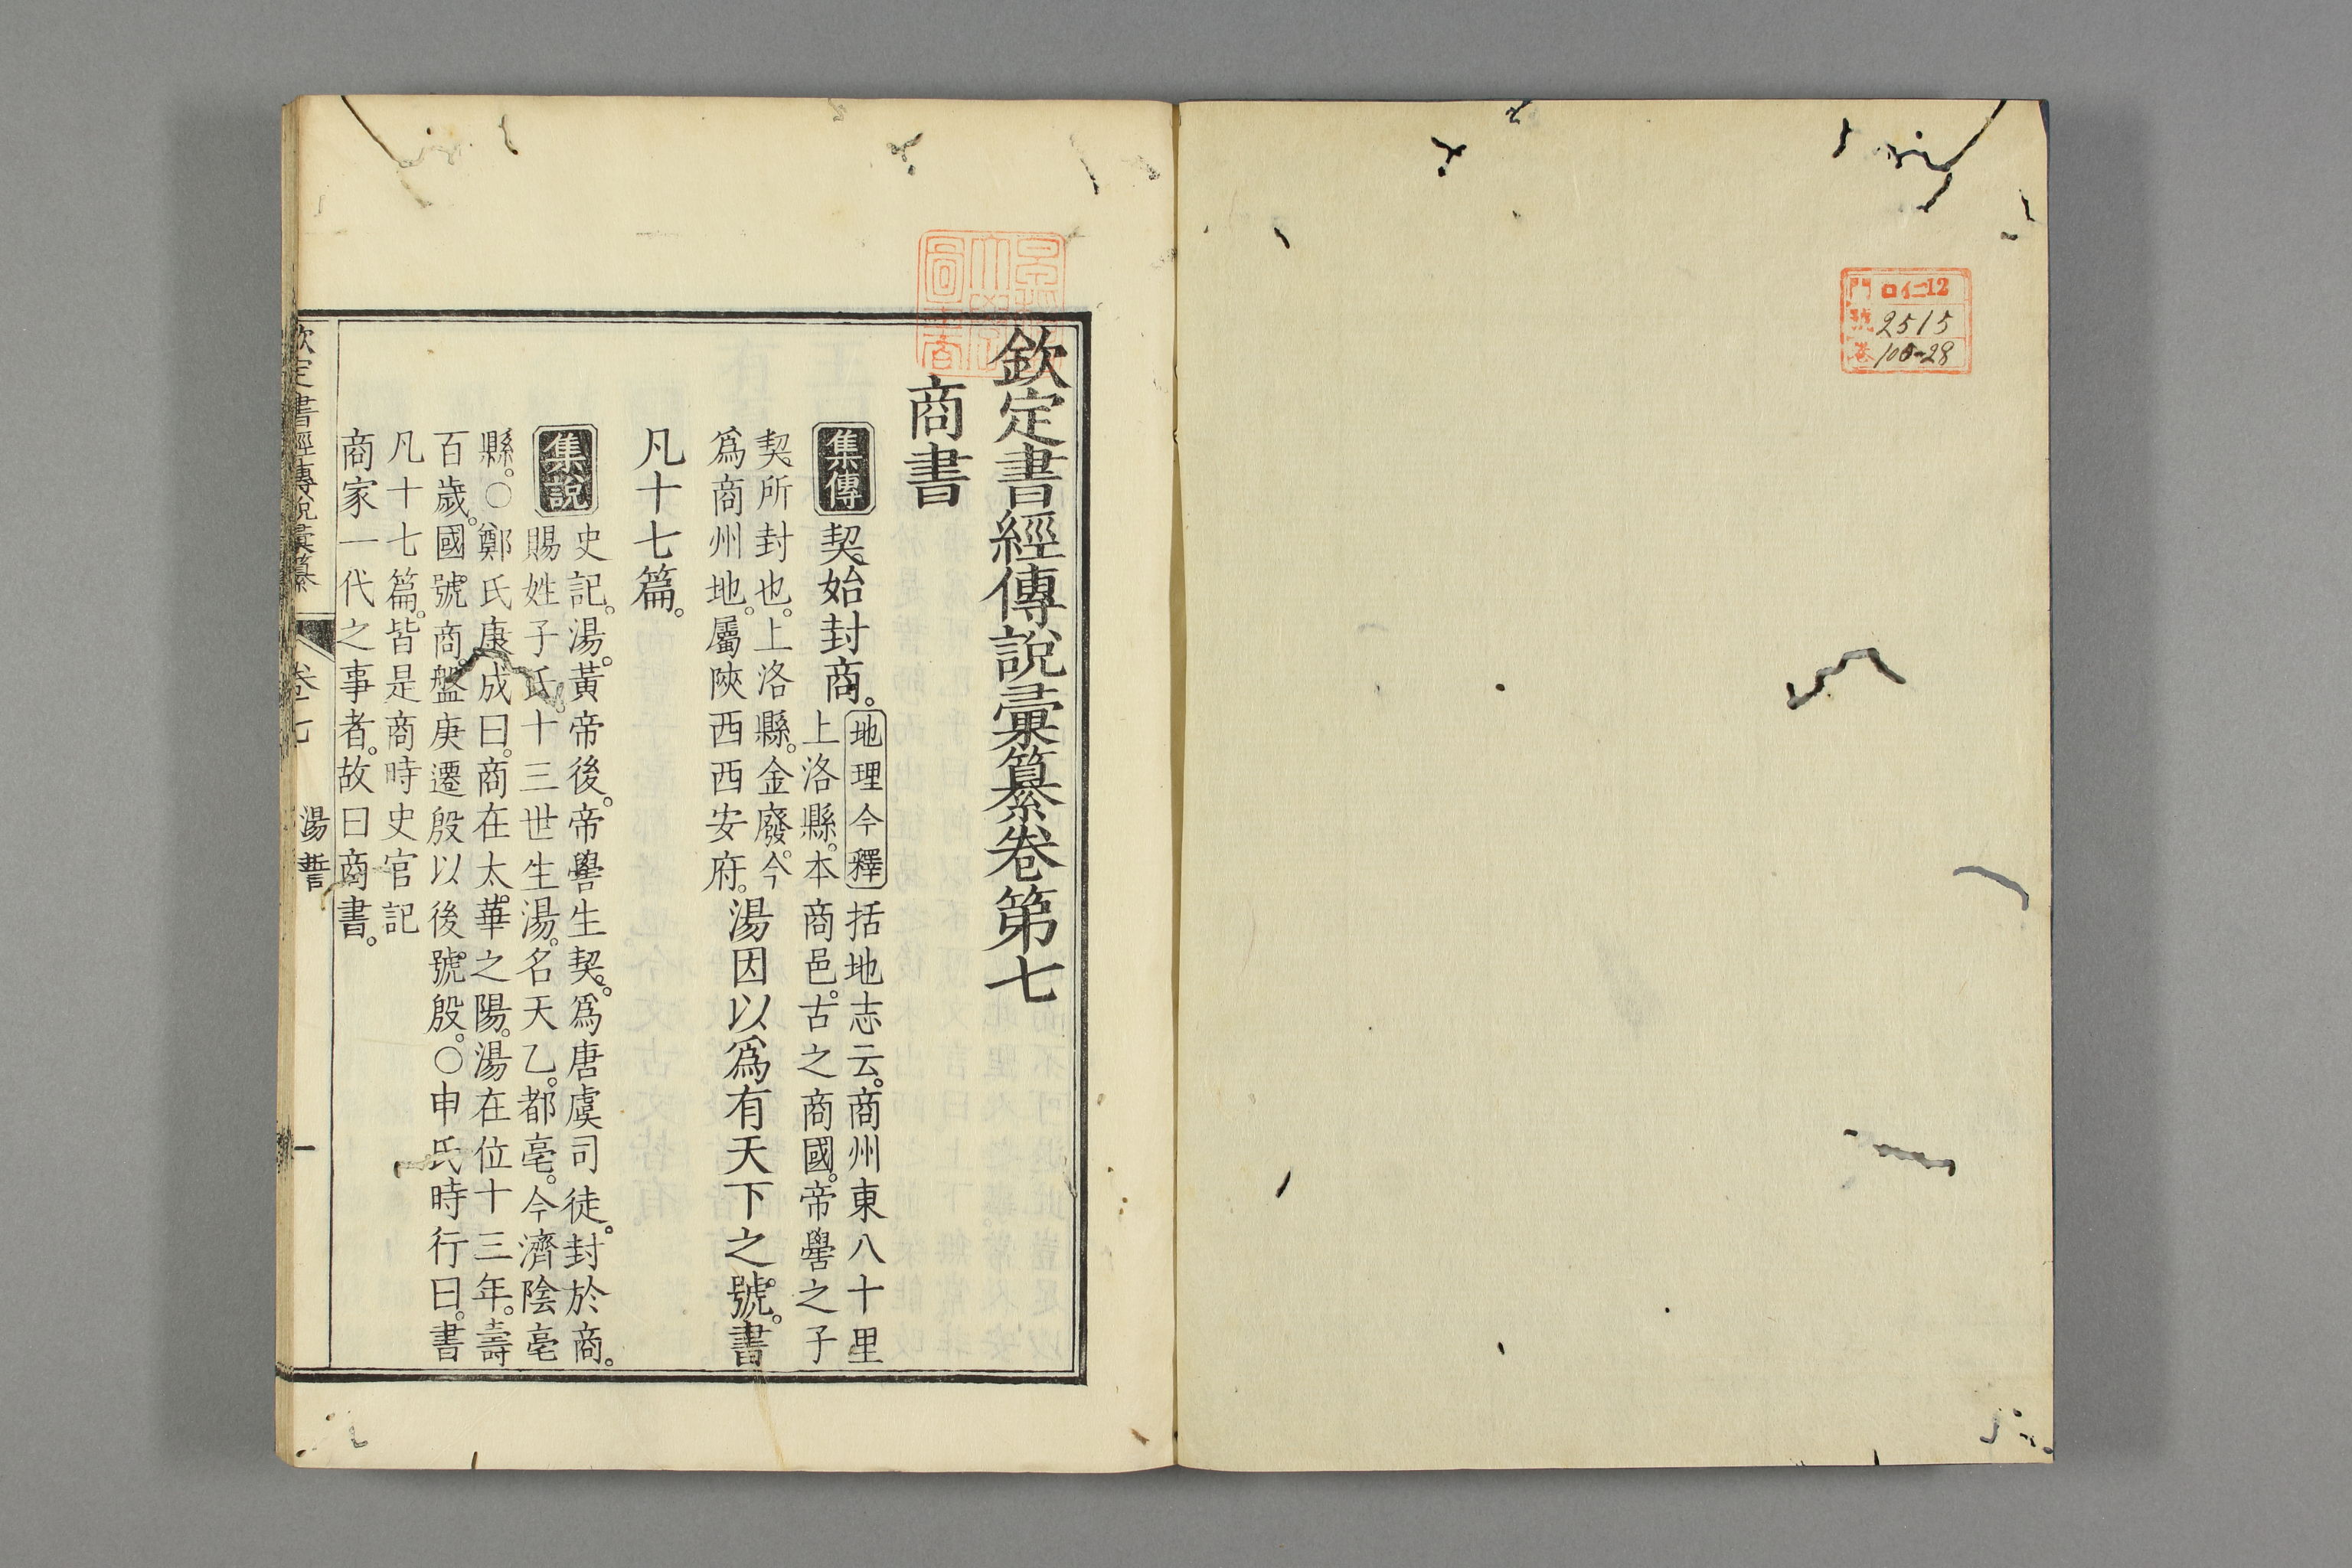 門 ロ仁12
號 2515
卷 105-28
欽定書經傳說彙纂卷第七
商書
集傳 契始封商。地理今釋 括地志云。商州東八十里
上洛縣。本商邑。古之商國。帝嚳之子
契所封也。上洛縣。金廢。今
爲商州地。屬陝西西安府。湯因以爲有天下之號。書
凡十七篇。
集說 史記。湯。黃帝後。帝嚳生契。爲唐虞司徒。封於商。
賜姓子氏。十三世生湯。名天乙。都亳。今濟陰亳
縣。○鄭氏康成曰。商在太華之陽。湯在位十三年。壽
百歲。國號商。盤庚遷殷以後。號殷。○申氏時行曰。書
凡十七篇。皆是商時史官記
商家一代之事者。故曰商書。
欽定書經傳說彙纂 卷七 湯誓 一